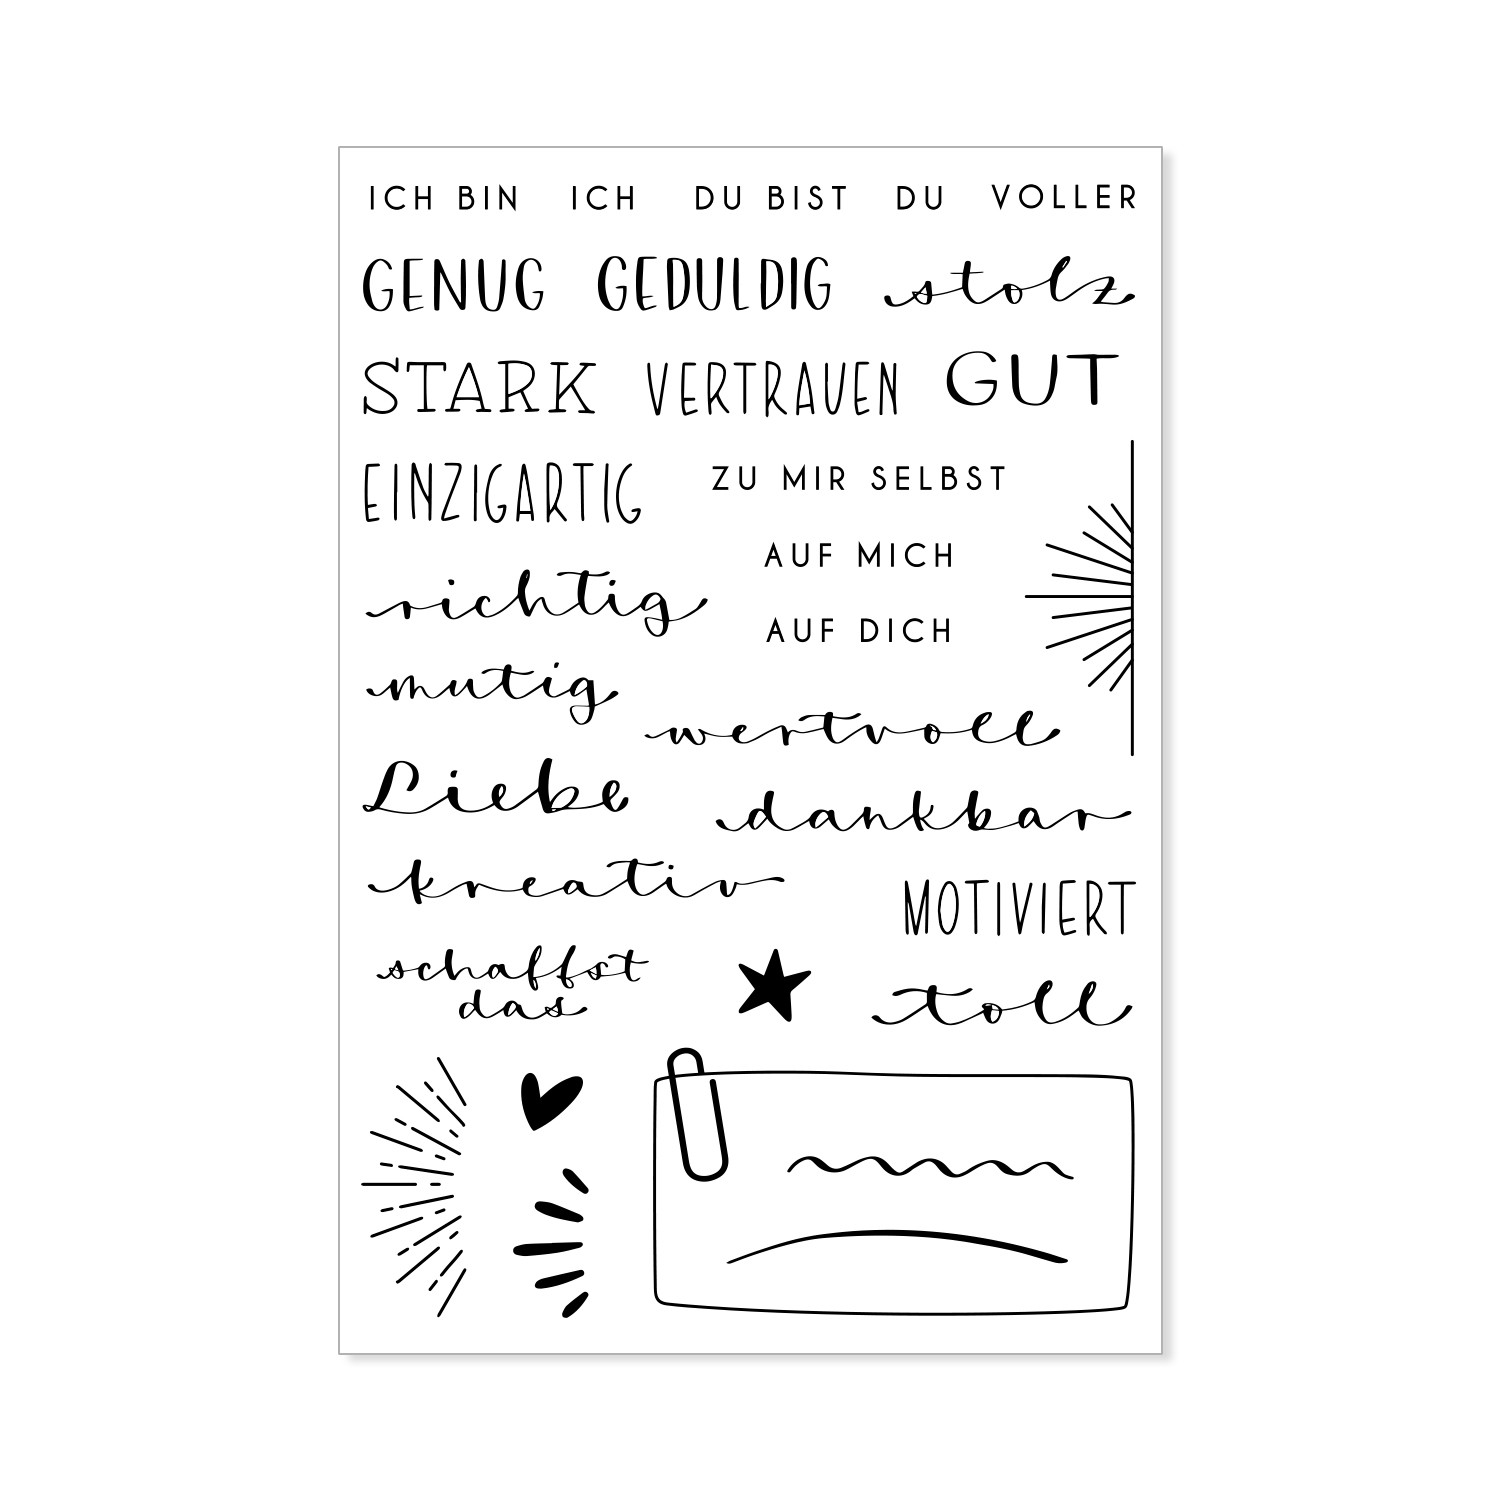 ICH BIN ICH DU BIST DU VOLLER
GENUG GEDULDIG stolz
STARK VERTRAUEN GUT
EINZIGARTIG ZU MIR SELBST
AUF MICH
richtig
AUF DICH
mutig
wertvoll
Liebe
dankbar
kreativ
MOTIVIERT
schaffst
das
toll